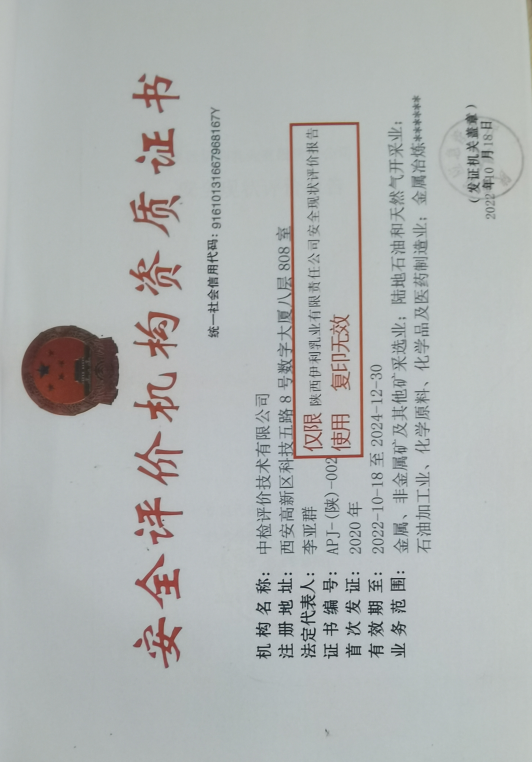 安全评价机构资质证书
统一社会信用代码：91610131667968167Y
机构名称：中检评价技术有限公司
注册地址：西安高新区科技五路8号数字大厦八层808室
法定代表人：李亚群
证书编号：APJ-(陕)-002
首次发证：2020年
有效期至：2022-10-18至2024-12-30
业务范围：金属、非金属矿及其他矿采选业；陆地石油和天然气开采业；
石油加工业、化学原料、化学品及医药制造业；金属冶炼******
仅限 陕西伊利乳业有限责任公司安全现状评价报告
使用 复印无效
（发证机关盖章）
2022年10月18日